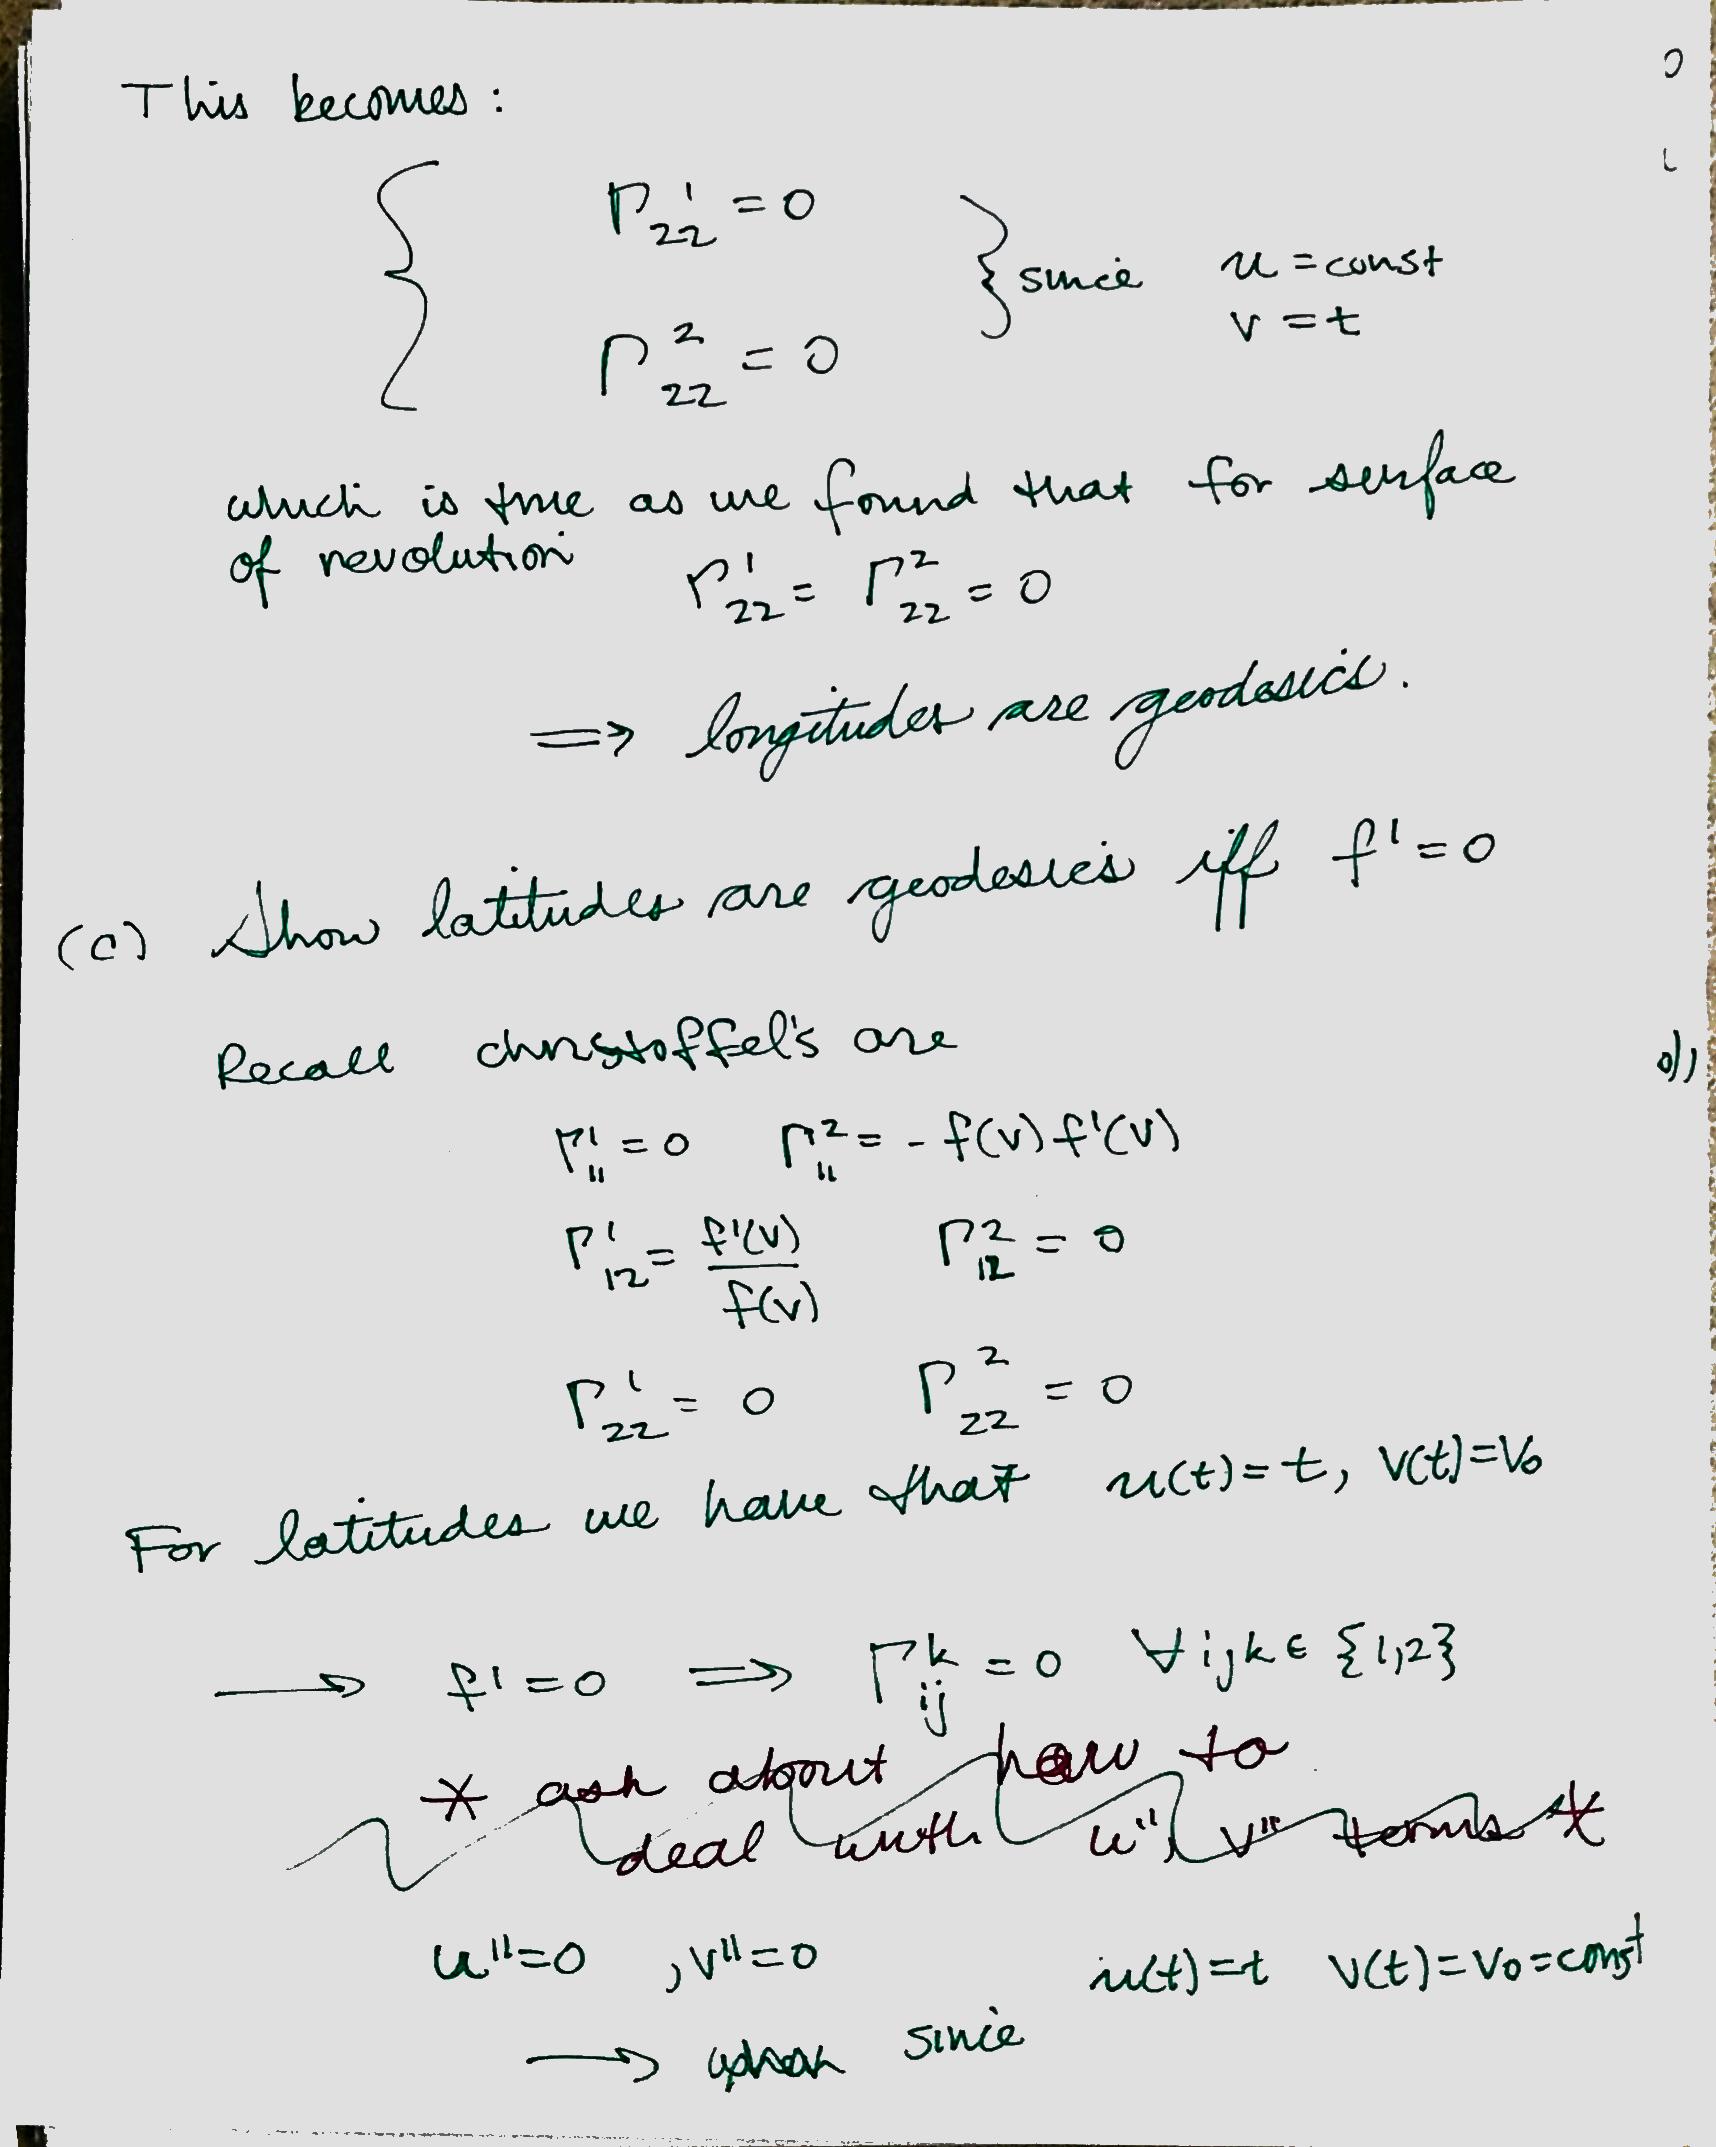 This becomes:
Γ¹₂₂ = 0
Γ²₂₂ = 0
} since u = const
v = t
which is true as we found that for surface
of revolution
Γ¹₂₂ = Γ²₂₂ = 0
⟹ longitudes are geodesics.
(c) Show latitudes are geodesics iff f' = 0
Recall christoffel's are
Γ¹₁₁ = 0 Γ²₁₁ = - f(v) f'(v)
Γ¹₁₂ = f'(v)/f(v) Γ²₁₂ = 0
Γ¹₂₂ = 0 Γ²₂₂ = 0
For latitudes we have that u(t) = t, v(t) = v₀
→ f' = 0 ⟹ Γᵏᵢⱼ = 0 ∀ ijk ∈ {1,2}
* ask about how to
deal with u'', v'' terms *
u'' = 0 , v'' = 0 u(t) = t v(t) = v₀ = const
→ since